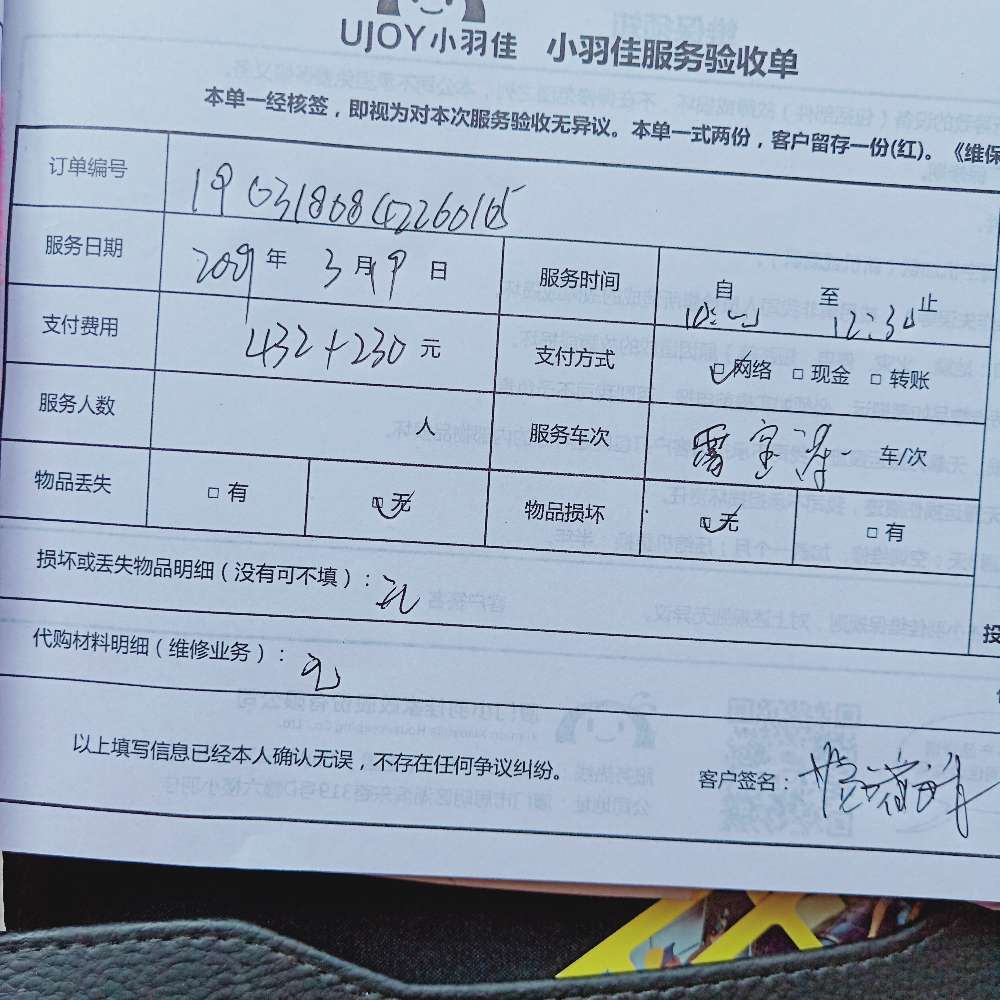 UJOY小羽佳 小羽佳服务验收单
本单一经核签，即视为对本次服务验收无异议。本单一式两份，客户留存一份(红)。《维保
订单编号 190318084226016
服务日期 2019 年 3 月 19 日 服务时间 自 10:00 至 12:30 止
支付费用 432+230 元 支付方式 □ 网络 □ 现金 □ 转账
服务人数 人 服务车次 车/次
物品丢失 □ 有 □ 无 物品损坏 □ 无 □ 有
损坏或丢失物品明细（没有可不填）：无
代购材料明细（维修业务）：无
以上填写信息已经本人确认无误，不存在任何争议纠纷。 客户签名：